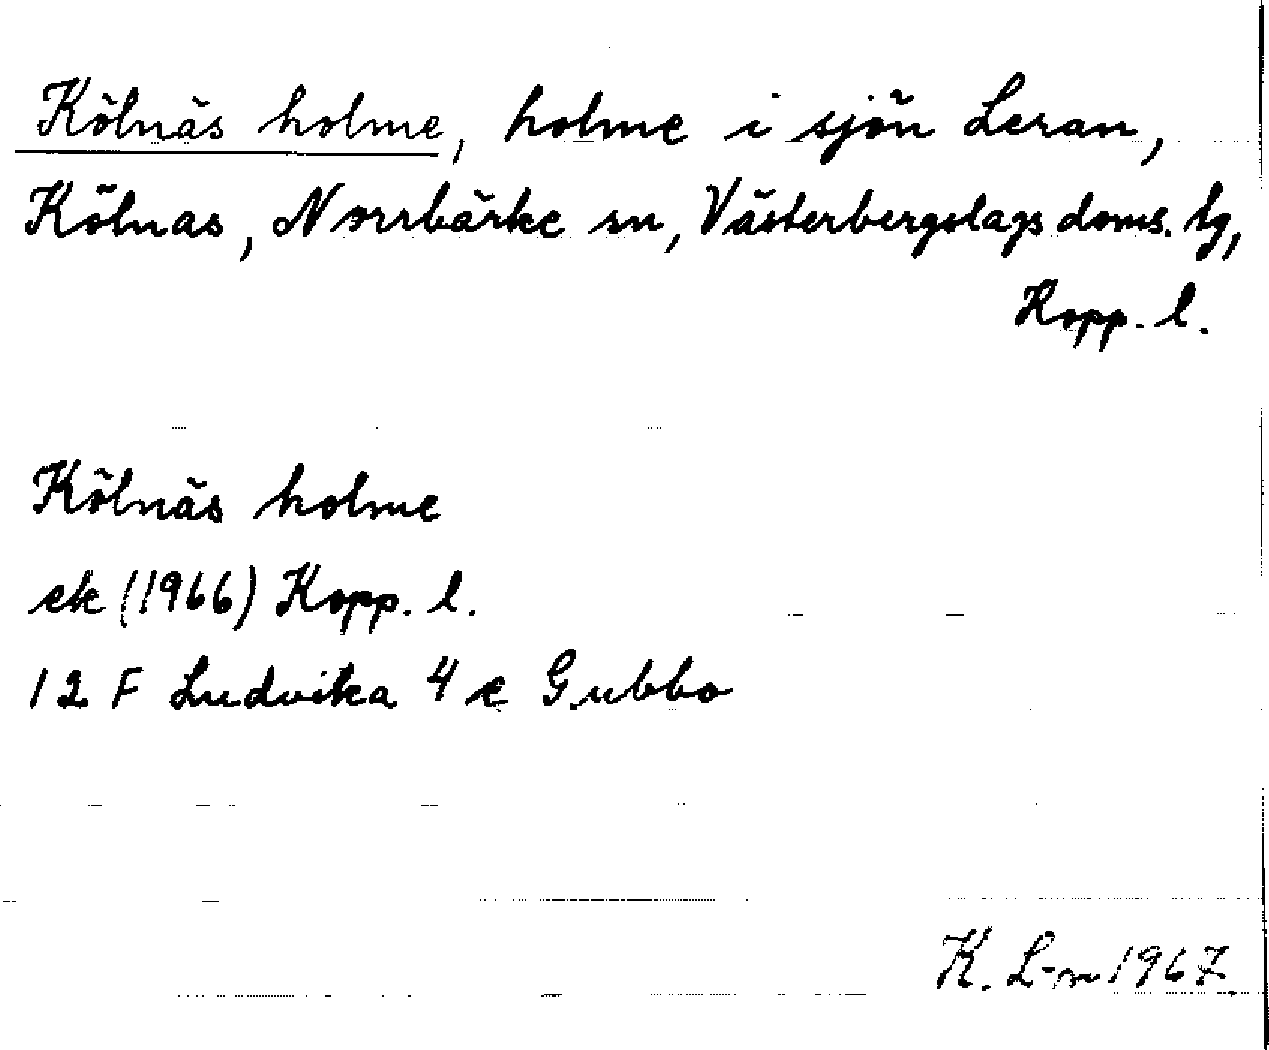 Kölnäs holme, holme i sjön Leran,
Kölnas, Norrbärke sn, Västerbergslags doms. tg,
Kopp. l.
Kölnäs holme
ek (1966) Kopp. l.
12 F Ludvika 4 e Gubbo
K. L-m 1967.